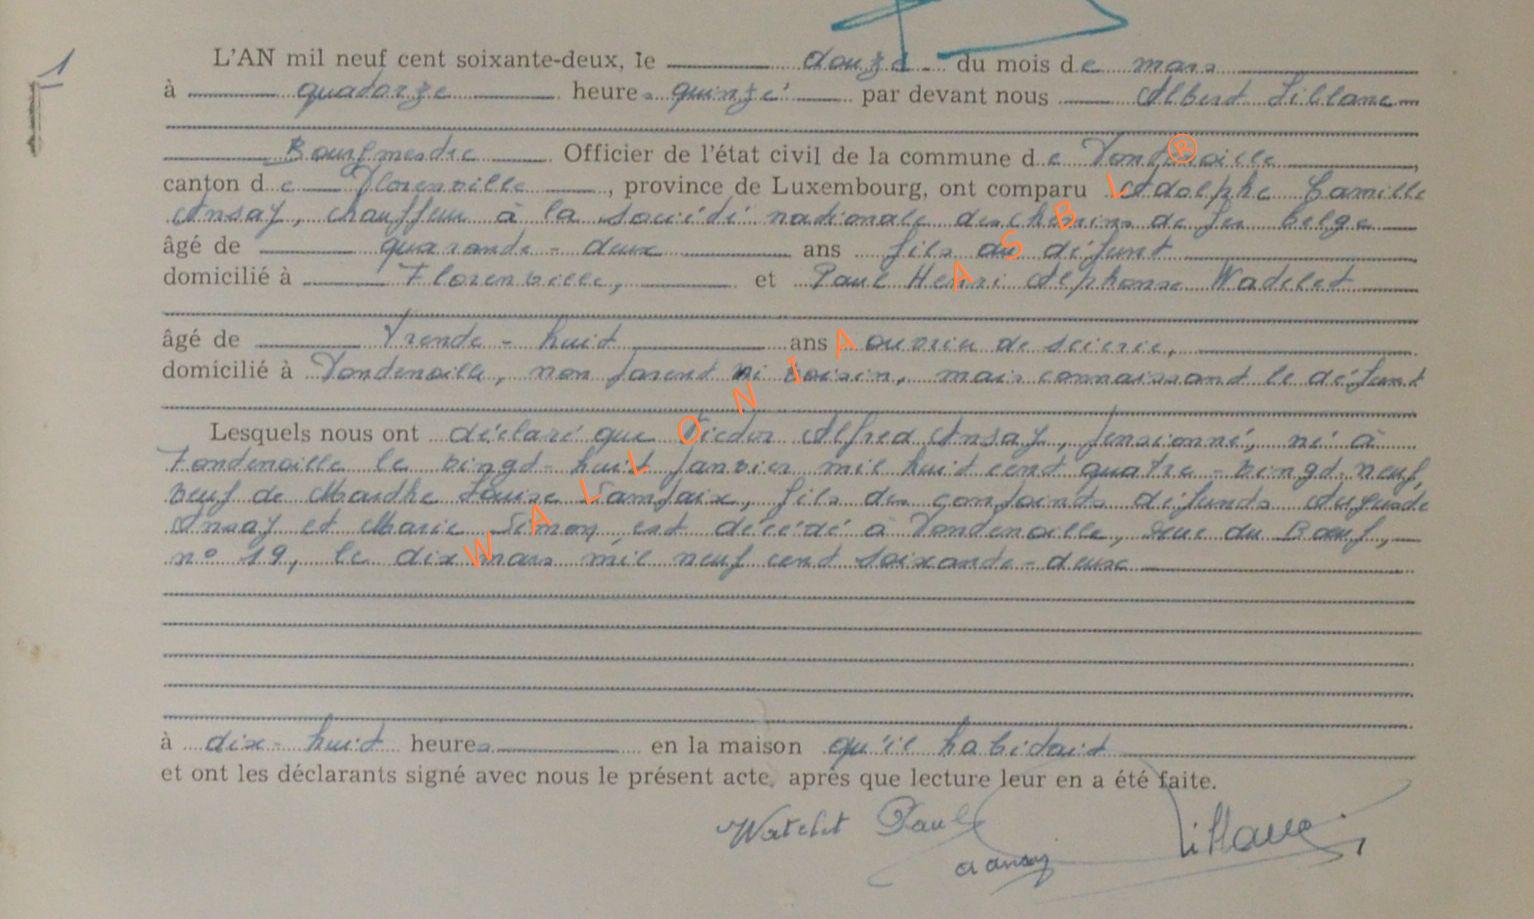 1
L'AN mil neuf cent soixante-deux, le douze du mois de mars
à quatorze heures quinze par devant nous Albert Liblanc
Bourgmestre Officier de l'état civil de la commune de Fontenoille,
canton de Florenville, province de Luxembourg, ont comparu Adolphe Camille
Ansay, chauffeur à la société nationale des chemins de fer belge
âgé de quarante-deux ans fils du défunt
domicilié à Florenville, et Paul Henri Alphonse Watelet
âgé de Trente-huit ans ouvrier de scierie,
domicilié à Fontenoille, non parent ni voisin, mais connaissant le défunt
Lesquels nous ont déclaré que Victor Alfred Ansay, pensionné, né à
Fontenoille le vingt-huit janvier mil huit cent quatre-vingt-neuf,
veuf de Marthe Louise Lamjaix, fils des conjoints défunts Auguste
Ansay et Marie Simon, est décédé à Fontenoille, rue du Bœuf,
n° 19, le dix mars mil neuf cent soixante-deux
à dix-huit heures en la maison qu'il habitait
et ont les déclarants signé avec nous le présent acte, après que lecture leur en a été faite.
Watelet Paul
a ansay
WALLONIA ASBL ®